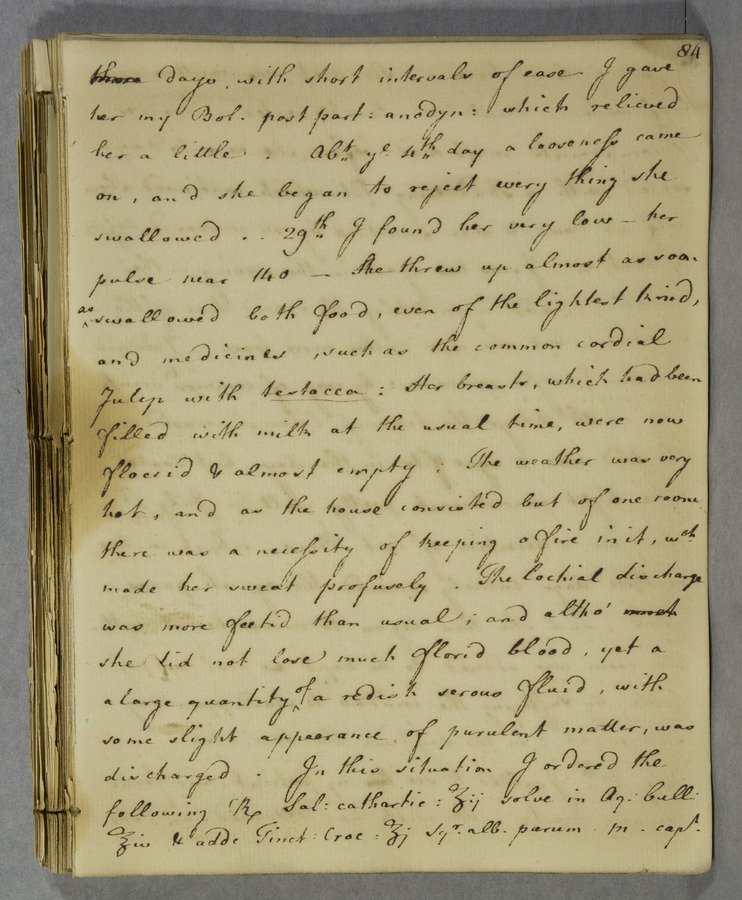 84
three days, with short intervals of ease I gave
her my Bol. post part: anodyn: which relieved
her a little. Abt. ye. 4th day a looseness came
on, and she began to reject every thing she
swallowed .. 29th I found her very low – her
pulse near 140 – She threw up almost as soon
as swallowed both food, even of the lightest kind,
and medicines, such as the common cordial
Julep with testacea: Her breasts, which had been
filled with milk at the usual time, were now
flaccid & almost empty: The weather was very
hot, and as the house consisted but of one room
there was a necessity of keeping a fire in it, wch.
made her sweat profusely. The lochial discharge
was more foetid than usual; and altho'
she did not lose much florid blood, yet a
a large quantity of a redish serous fluid, with
some slight appearance of purulent matter, was
discharged. In this situation I ordered the
following Rx Sal: cathartic: ʒij solve in Aq: bull:
℥iv & adde Tinct: Croc: ʒj Syr. alb. parum. m. capt.